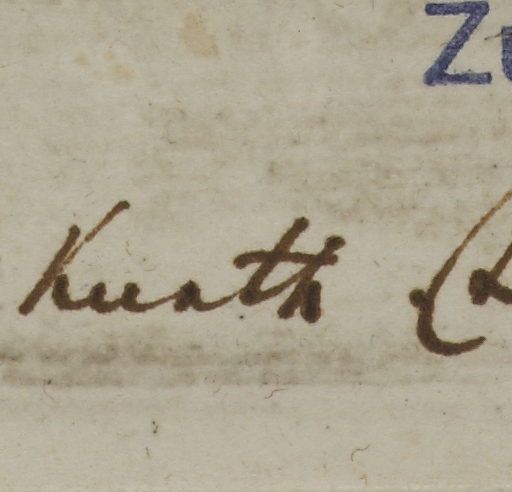 Zu
Kunth (